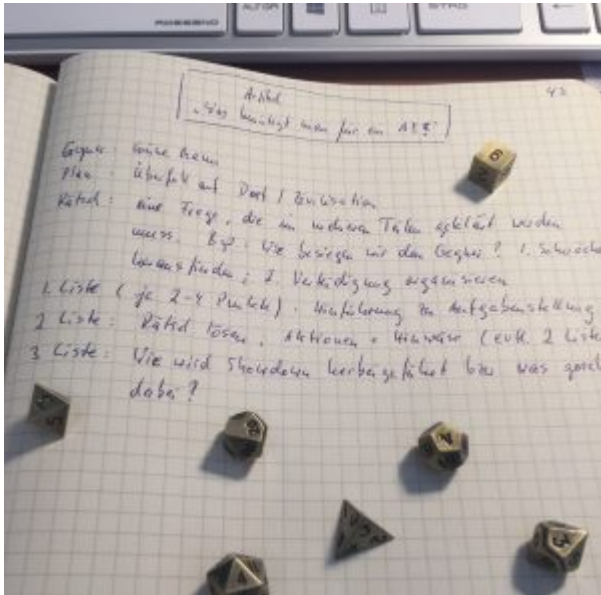 ALT GR
STRG
42
Artikel
"Was benötigt man für ein
Gegner:
Plan: Überfall auf Dorf / Zivilisation
Rätsel: eine Frage, die in mehreren Teilen geklärt werden
muss. Bsp.: Wie besiegen wir den Gegner? 1. Schwäche
herausfinden; 2. Verteidigung organisieren
1. Liste (je 2-4 Punkte): Hinführung zu Aufgabenstellung
2 Liste: Rätsel lösen, Aktionen + Hinweise (evtl. 2 Liste
3 Liste: Wie wird Showdown herbeigeführt bzw was
dabei?
6
5
4
4
3